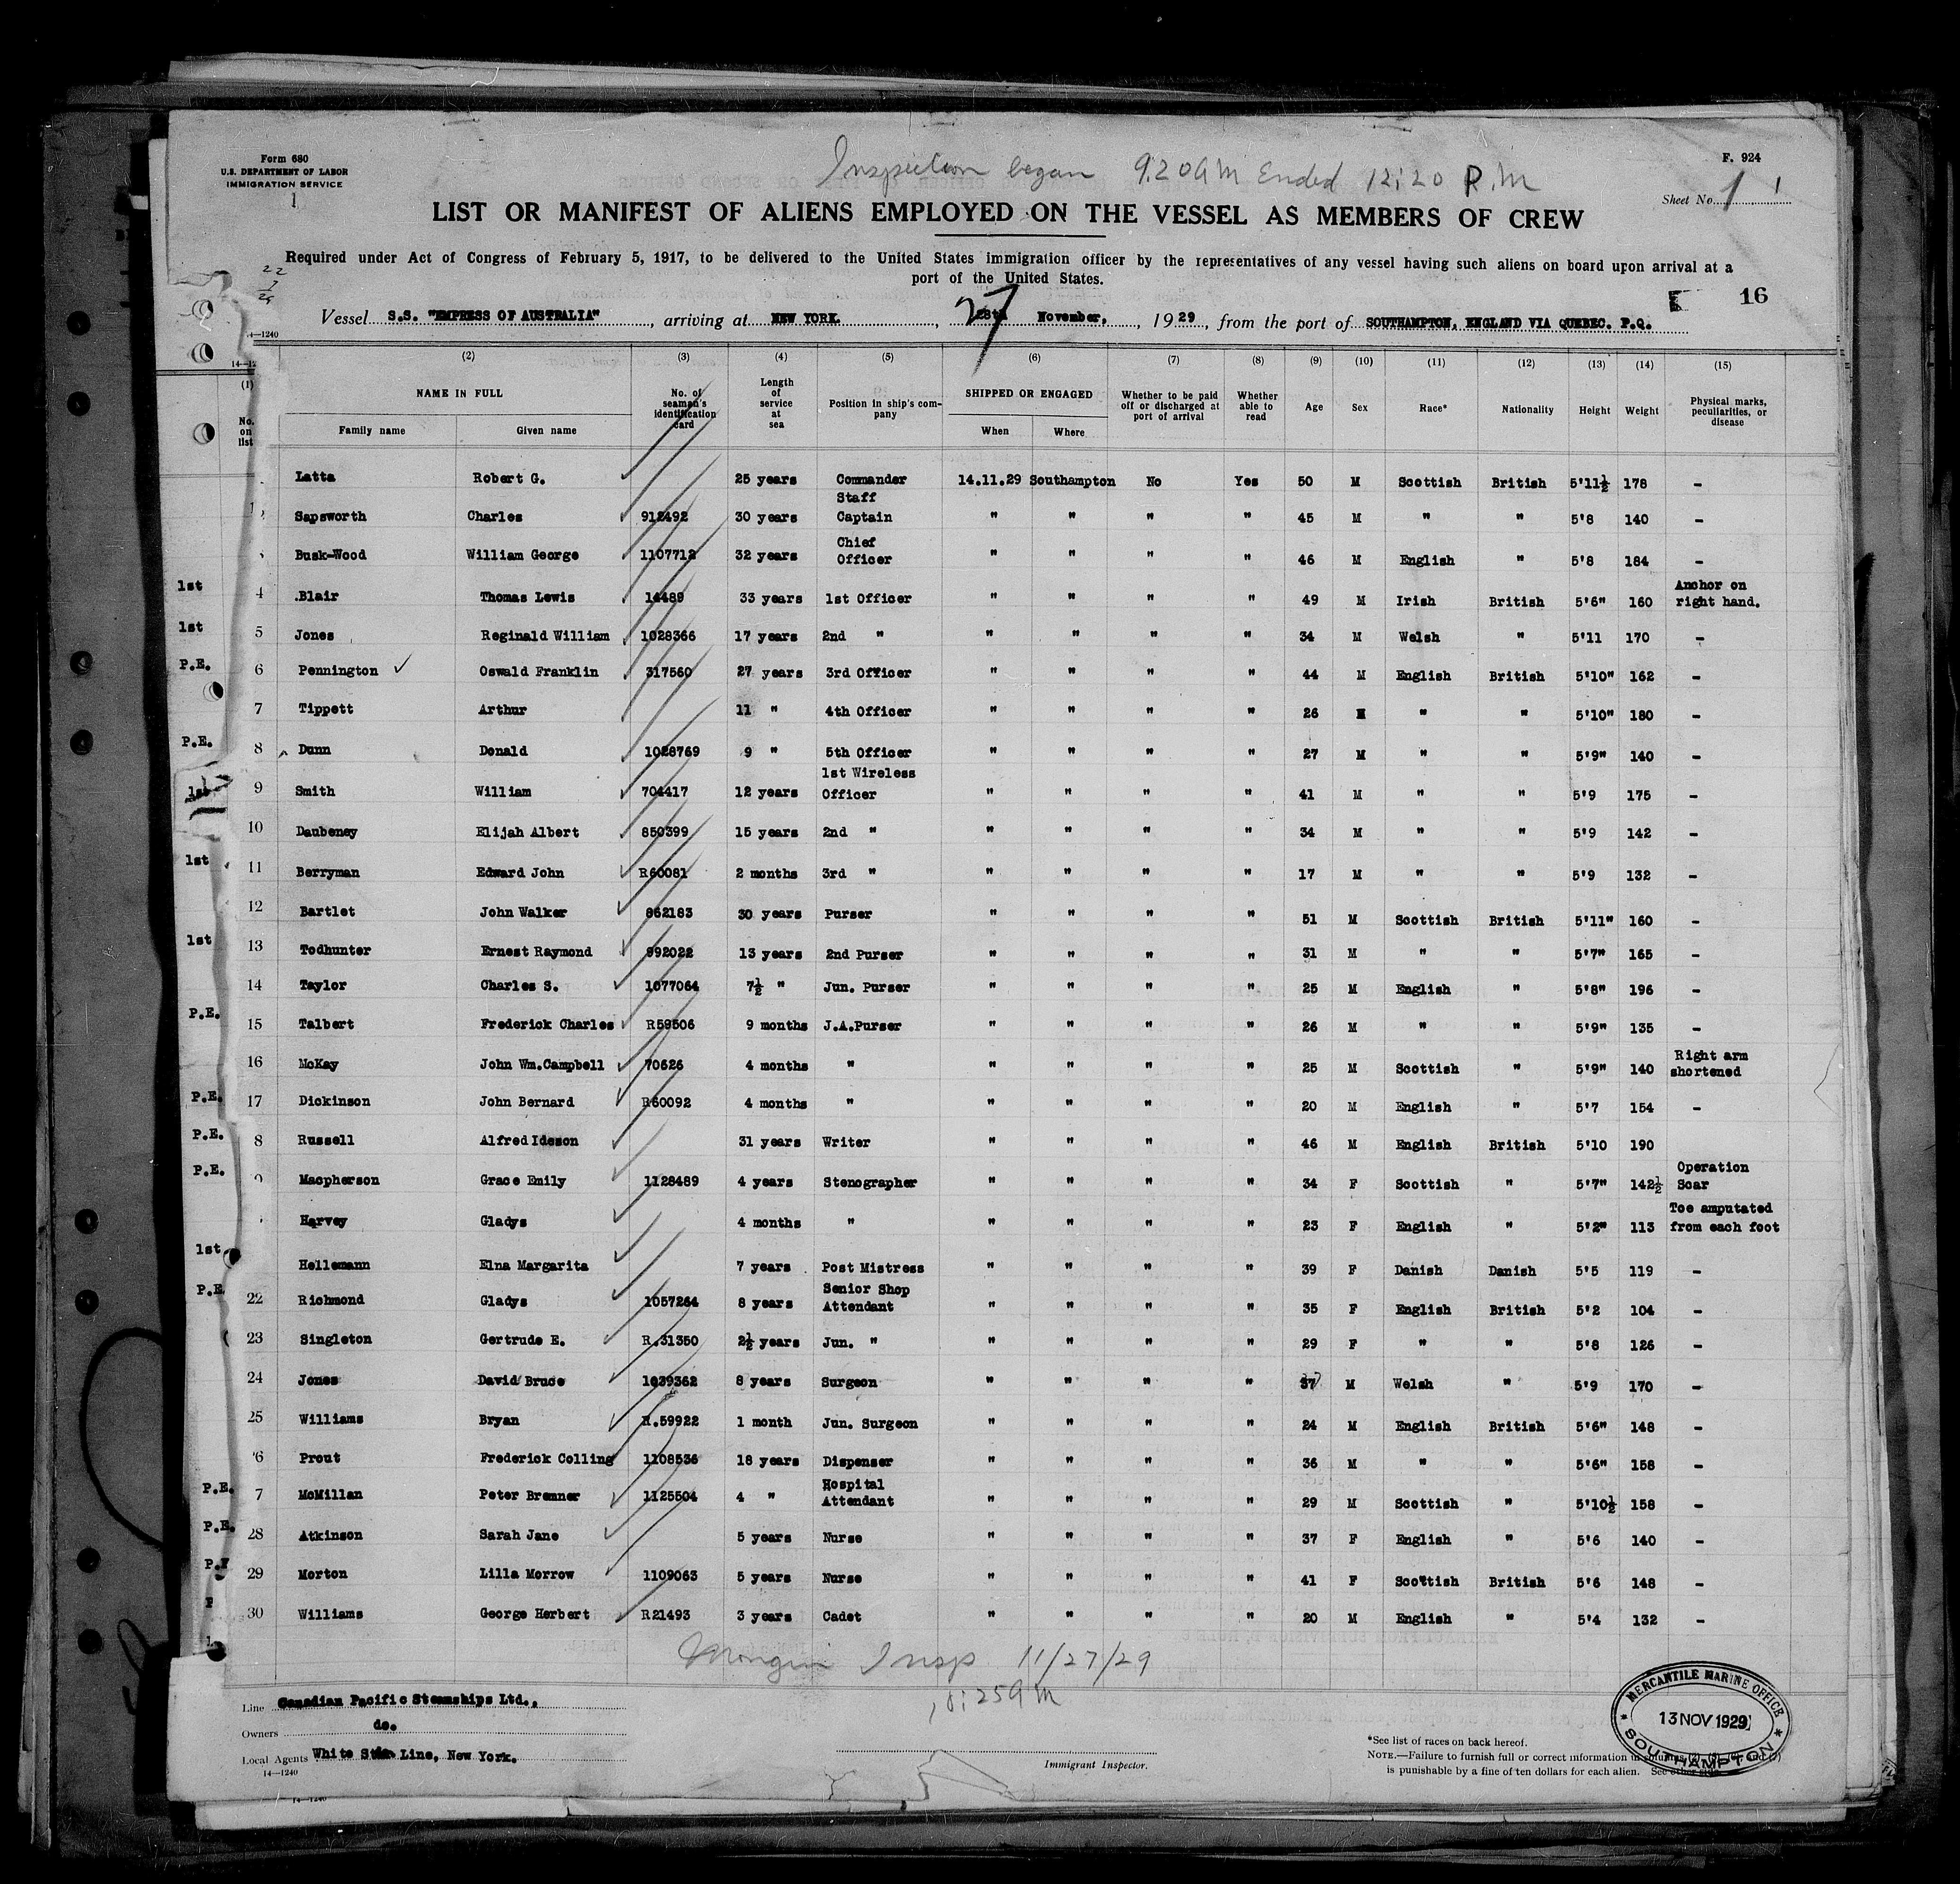 Form 680
U.S. DEPARTMENT OF LABOR
IMMIGRATION SERVICE
1
Inspection began 9:20 AM Ended 12:20 P.M
F. 924
Sheet No. 1 1
LIST OR MANIFEST OF ALIENS EMPLOYED ON THE VESSEL AS MEMBERS OF CREW
Required under Act of Congress of February 5, 1917, to be delivered to the United States immigration officer by the representatives of any vessel having such aliens on board upon arrival at a
port of the United States.
16
Vessel S.S. "EMPRESS OF AUSTRALIA", arriving at NEW YORK., 27 28th November, 1929, from the port of SOUTHAMPTON, ENGLAND VIA QUEBEC. P.Q.
(1) (2) (3) (4) (5) (6) (7) (8) (9) (10) (11) (12) (13) (14) (15)
No. on list NAME IN FULL Family name Given name No. of seaman's identification card Length of service at sea Position in ship's company SHIPPED OR ENGAGED When Where Whether to be paid off or discharged at port of arrival Whether able to read Age Sex Race* Nationality Height Weight Physical marks, peculiarities, or disease
Latta Robert G. 25 years Commander 14.11.29 Southampton No Yes 50 M Scottish British 5'11½ 178 -
Sapsworth Charles 912492 30 years Staff Captain " " " " 45 M " " 5'8 140 -
Busk-Wood William George 1107712 32 years Chief Officer " " " " 46 M English " 5'8 184 -
1st 4 Blair Thomas Lewis 14489 33 years 1st Officer " " " " 49 M Irish British 5'6" 160 Anchor on right hand.
1st 5 Jones Reginald William 1028366 17 years 2nd " " " " " 34 M Welsh " 5'11 170 -
P.E. 6 Pennington Oswald Franklin 317560 27 years 3rd Officer " " " " 44 M English British 5'10" 162 -
7 Tippett Arthur 11 " 4th Officer " " " " 26 M " " 5'10" 180 -
P.E. 8 Dunn Donald 1028769 9 " 5th Officer " " " " 27 M " " 5'9" 140 -
1st 9 Smith William 704417 12 years 1st Wireless Officer " " " " 41 M " " 5'9 175 -
10 Daubeney Elijah Albert 850399 15 years 2nd " " " " " 34 M " " 5'9 142 -
1st 11 Berryman Edward John R60081 2 months 3rd " " " " " 17 M " " 5'9 132 -
12 Bartlet John Walker 862183 30 years Purser " " " " 51 M Scottish British 5'11" 160 -
1st 13 Todhunter Ernest Raymond 992022 13 years 2nd Purser " " " " 31 M " " 5'7" 165 -
14 Taylor Charles S. 1077064 7½ " Jun. Purser " " " " 25 M English " 5'8" 196 -
P.E. 15 Talbert Frederick Charles R59506 9 months J.A.Purser " " " " 26 M " " 5'9" 135 -
16 McKay John Wm.Campbell 70626 4 months " " " " " 25 M Scottish " 5'9" 140 Right arm shortened
P.E. 17 Dickinson John Bernard R60092 4 months " " " " " 20 M English " 5'7 154 -
P.E. 8 Russell Alfred Ideson 31 years Writer " " " " 46 M English British 5'10 190
P.E. Macpherson Grace Emily 1128489 4 years Stenographer " " " " 34 F Scottish " 5'7" 142½ Operation Scar
Harvey Gladys 4 months " " " " " 23 F English " 5'2" 113 Toe amputated from each foot
1st Hellemann Elna Margarita 7 years Post Mistress " " " " 39 F Danish Danish 5'5 119 -
P.E. 22 Richmond Gladys 1057264 8 years Senior Shop Attendant " " " " 35 F English British 5'2 104 -
23 Singleton Gertrude E. R.31350 2½ years Jun. " " " " " 29 F " " 5'8 126 -
24 Jones David Bruce 1039362 8 years Surgeon " " " " 37 M Welsh " 5'9 170 -
25 Williams Bryan R.59922 1 month Jun. Surgeon " " " " 24 M English British 5'6" 148 -
6 Prout Frederick Colling 1108536 18 years Dispenser " " " " 36 M " " 5'6" 158 -
P.E. 7 McMillan Peter Bremner 1125504 4 " Hospital Attendant " " " " 29 M Scottish " 5'10½ 158 -
P.E. 28 Atkinson Sarah Jane 5 years Nurse " " " " 37 F English " 5'6 140 -
29 Morton Lilla Morrow 1109063 5 years Nurse " " " " 41 F Scottish British 5'6 148 -
30 Williams George Herbert R21493 3 years Cadet " " " " 20 M English " 5'4 132 -
Insp 11/27/29
Line Canadian Pacific Steamships Ltd.,
Owners do.
Local Agents White Star Line, New York.
14—1240
Immigrant Inspector.
*See list of races on back hereof.
NOTE.—Failure to furnish full or correct information in columns (2), (3), (6), and (7)
is punishable by a fine of ten dollars for each alien. See other side.
MERCANTILE MARINE OFFICE
13 NOV 1929
SOUTHAMPTON